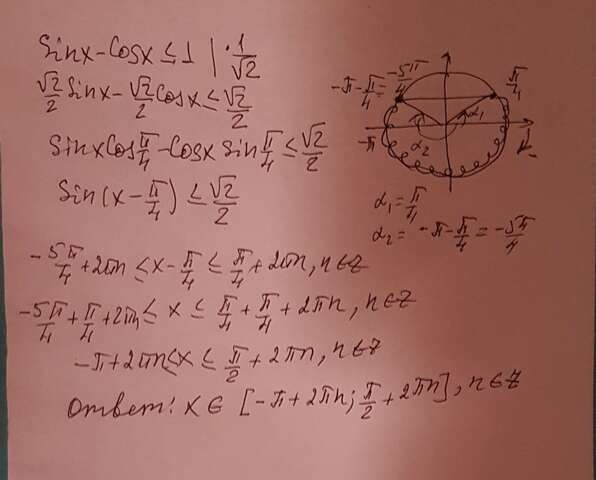 Sinx-Cosx ≤ 1 | · 1/√2
√2/2 Sinx - √2/2 Cosx ≤ √2/2
Sinx Cos π/4 - Cosx Sin π/4 ≤ √2/2
Sin(x - π/4) ≤ √2/2
-π - π/4 = -5π/4
π/4
α₁
α₂
-π
α₁ = π/4
α₂ = -π - π/4 = -5π/4
-5π/4 + 2πn ≤ x - π/4 ≤ π/4 + 2πn, n∈Z
-5π/4 + π/4 + 2πn ≤ x ≤ π/4 + π/4 + 2πn, n∈Z
-π + 2πn ≤ x ≤ π/2 + 2πn, n∈Z
Ответ: x ∈ [-π + 2πn; π/2 + 2πn], n∈Z